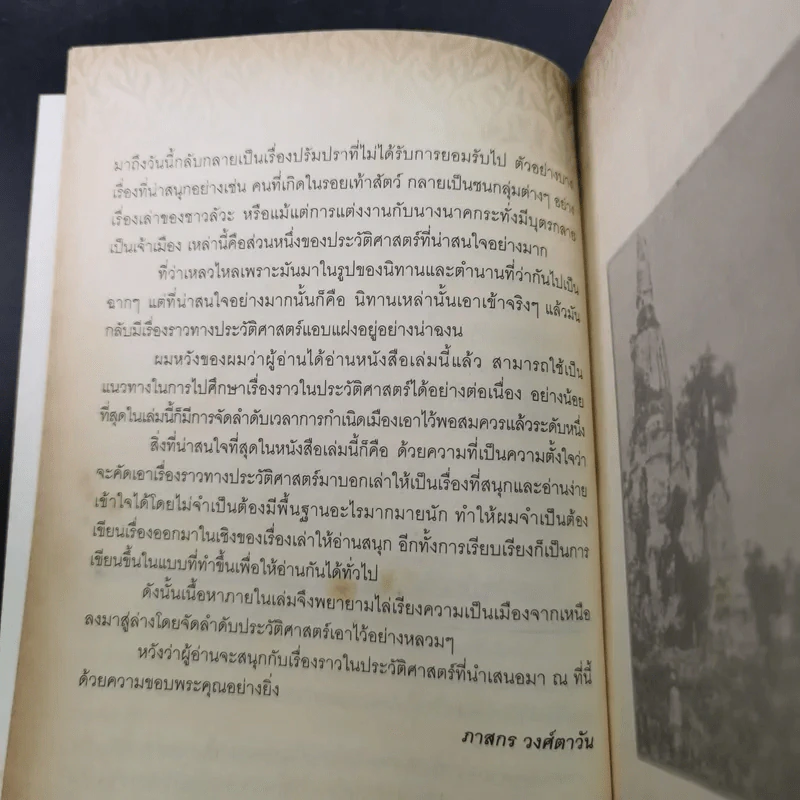 มาถึงวันนี้กลับกลายเป็นเรื่องปรัมปราที่ไม่ได้รับการยอมรับไป ตัวอย่างบาง
เรื่องที่น่าสนุกอย่างเช่น คนที่เกิดในรอยเท้าสัตว์ กลายเป็นชนกลุ่มต่างๆ อย่าง
เรื่องเล่าของชาวลัวะ หรือแม้แต่การแต่งงานกับนางนาคกระทั่งมีบุตรกลาย
เป็นเจ้าเมือง เหล่านี้คือส่วนหนึ่งของประวัติศาสตร์ที่น่าสนใจอย่างมาก
ที่ว่าเหลวไหลเพราะมันมาในรูปของนิทานและตำนานที่ว่ากันไปเป็น
ฉากๆ แต่ที่น่าสนใจอย่างมากนั้นก็คือ นิทานเหล่านั้นเอาเข้าจริงๆ แล้วมัน
กลับมีเรื่องราวทางประวัติศาสตร์แอบแฝงอยู่อย่างน่าฉงน
ผมหวังของผมว่าผู้อ่านได้อ่านหนังสือเล่มนี้แล้ว สามารถใช้เป็น
แนวทางในการไปศึกษาเรื่องราวในประวัติศาสตร์ได้อย่างต่อเนื่อง อย่างน้อย
ที่สุดในเล่มนี้ก็มีการจัดลำดับเวลาการกำเนิดเมืองเอาไว้พอสมควรแล้วระดับหนึ่ง
สิ่งที่น่าสนใจที่สุดในหนังสือเล่มนี้ก็คือ ด้วยความที่เป็นความตั้งใจว่า
จะคัดเอาเรื่องราวทางประวัติศาสตร์มาบอกเล่าให้เป็นเรื่องที่สนุกและอ่านง่าย
เข้าใจได้โดยไม่จำเป็นต้องมีพื้นฐานอะไรมากมายนัก ทำให้ผมจำเป็นต้อง
เขียนเรื่องออกมาในเชิงของเรื่องเล่าให้อ่านสนุก อีกทั้งการเรียบเรียงก็เป็นการ
เขียนขึ้นในแบบที่ทำขึ้นเพื่อให้อ่านกันได้ทั่วไป
ดังนั้นเนื้อหาภายในเล่มจึงพยายามไล่เรียงความเป็นเมืองจากเหนือ
ลงมาสู่ล่างโดยจัดลำดับประวัติศาสตร์เอาไว้อย่างหลวมๆ
หวังว่าผู้อ่านจะสนุกกับเรื่องราวในประวัติศาสตร์ที่นำเสนอมา ณ ที่นี้
ด้วยความขอบพระคุณอย่างยิ่ง
ภาสกร วงศ์ตาวัน